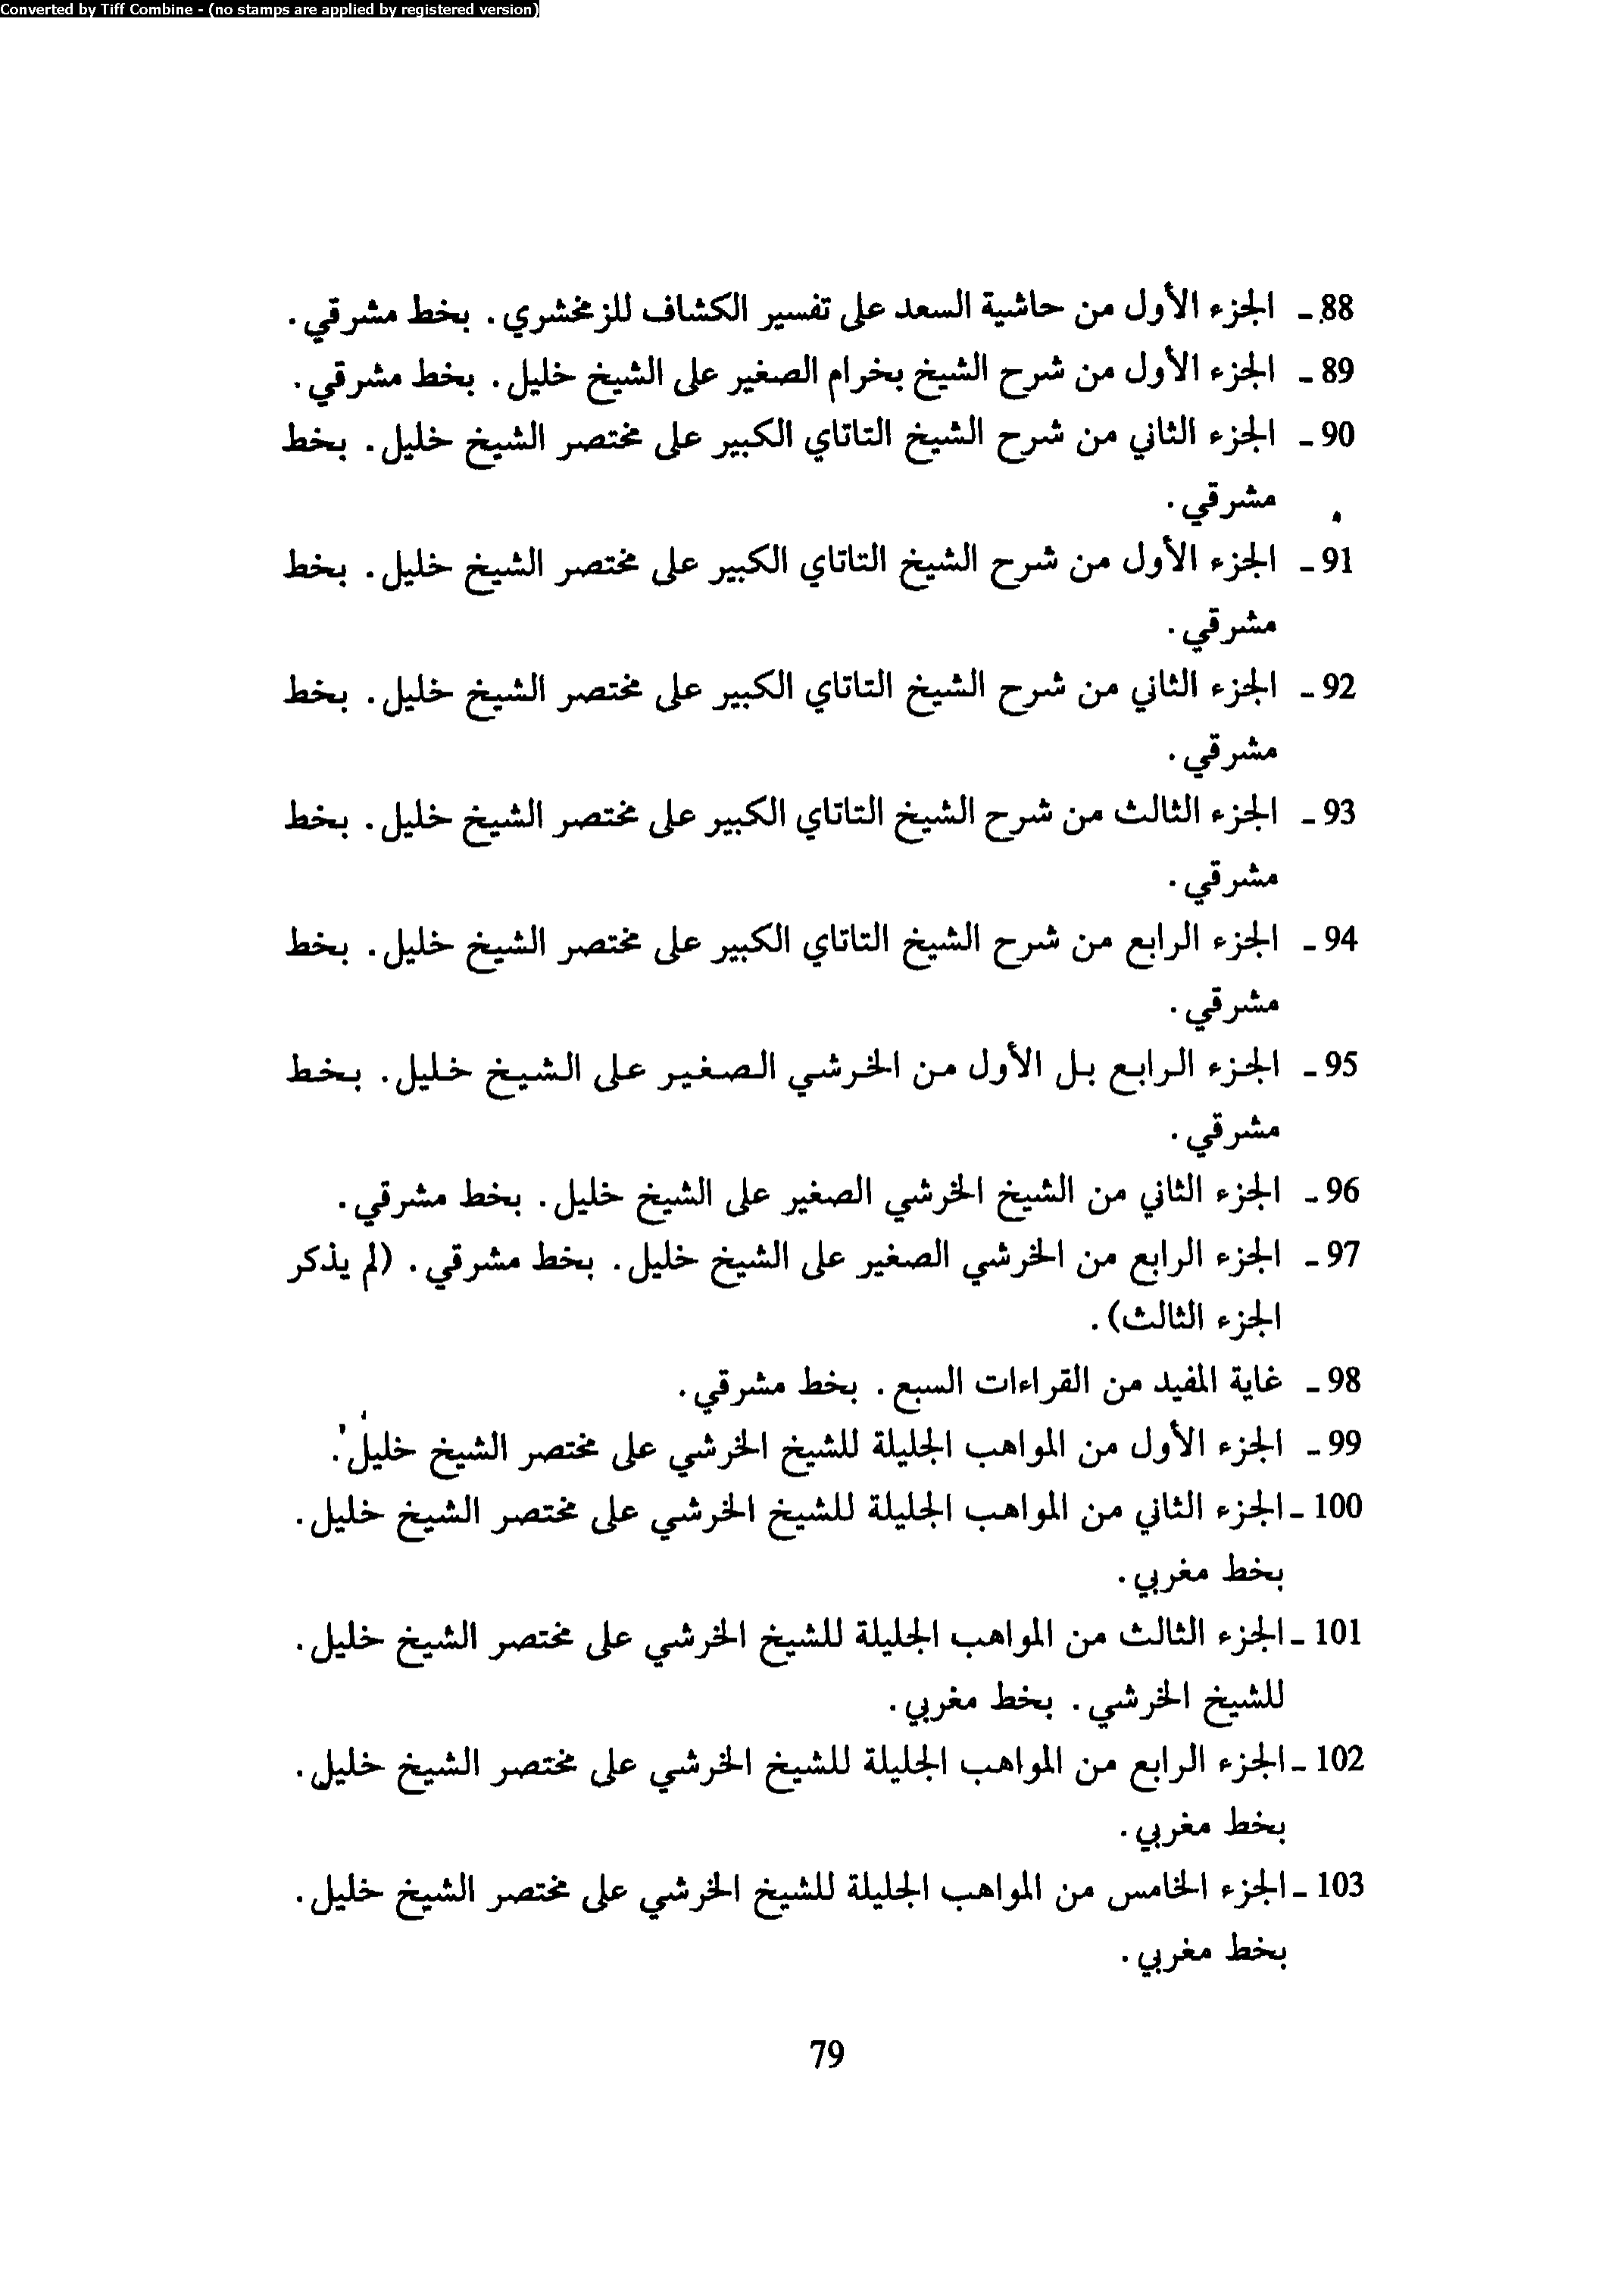 Converted by Tiff Combine - (no stamps are applied by registered version)
88 ـ الجزء الأول من حاشية السعد على تفسير الكشاف للزمخشري. بخط مشرقي.
89 ـ الجزء الأول من شرح الشيخ بخرام الصغير على الشيخ خليل. بخط مشرقي.
90 ـ الجزء الثاني من شرح الشيخ التاتاي الكبير على مختصر الشيخ خليل. بخط
مشرقي.
91 ـ الجزء الأول من شرح الشيخ التاتاي الكبير على مختصر الشيخ خليل. بخط
مشرقي.
92 ـ الجزء الثاني من شرح الشيخ التاتاي الكبير على مختصر الشيخ خليل. بخط
مشرقي.
93 ـ الجزء الثالث من شرح الشيخ التاتاي الكبير على مختصر الشيخ خليل. بخط
مشرقي.
94 ـ الجزء الرابع من شرح الشيخ التاتاي الكبير على مختصر الشيخ خليل. بخط
مشرقي.
95 ـ الجزء الرابع بل الأول من الخرشي الصغير على الشيخ خليل. بخط
مشرقي.
96 ـ الجزء الثاني من الشيخ الخرشي الصغير على الشيخ خليل. بخط مشرقي.
97 ـ الجزء الرابع من الخرشي الصغير على الشيخ خليل. بخط مشرقي. (لم يذكر
الجزء الثالث).
98 ـ غاية المفيد من القراءات السبع. بخط مشرقي.
99 ـ الجزء الأول من المواهب الجليلة للشيخ الخرشي على مختصر الشيخ خليل.
100 ـ الجزء الثاني من المواهب الجليلة للشيخ الخرشي على مختصر الشيخ خليل.
بخط مغربي.
101 ـ الجزء الثالث من المواهب الجليلة للشيخ الخرشي على مختصر الشيخ خليل.
للشيخ الخرشي. بخط مغربي.
102 ـ الجزء الرابع من المواهب الجليلة للشيخ الخرشي على مختصر الشيخ خليل.
بخط مغربي.
103 ـ الجزء الخامس من المواهب الجليلة للشيخ الخرشي على مختصر الشيخ خليل.
بخط مغربي.
79